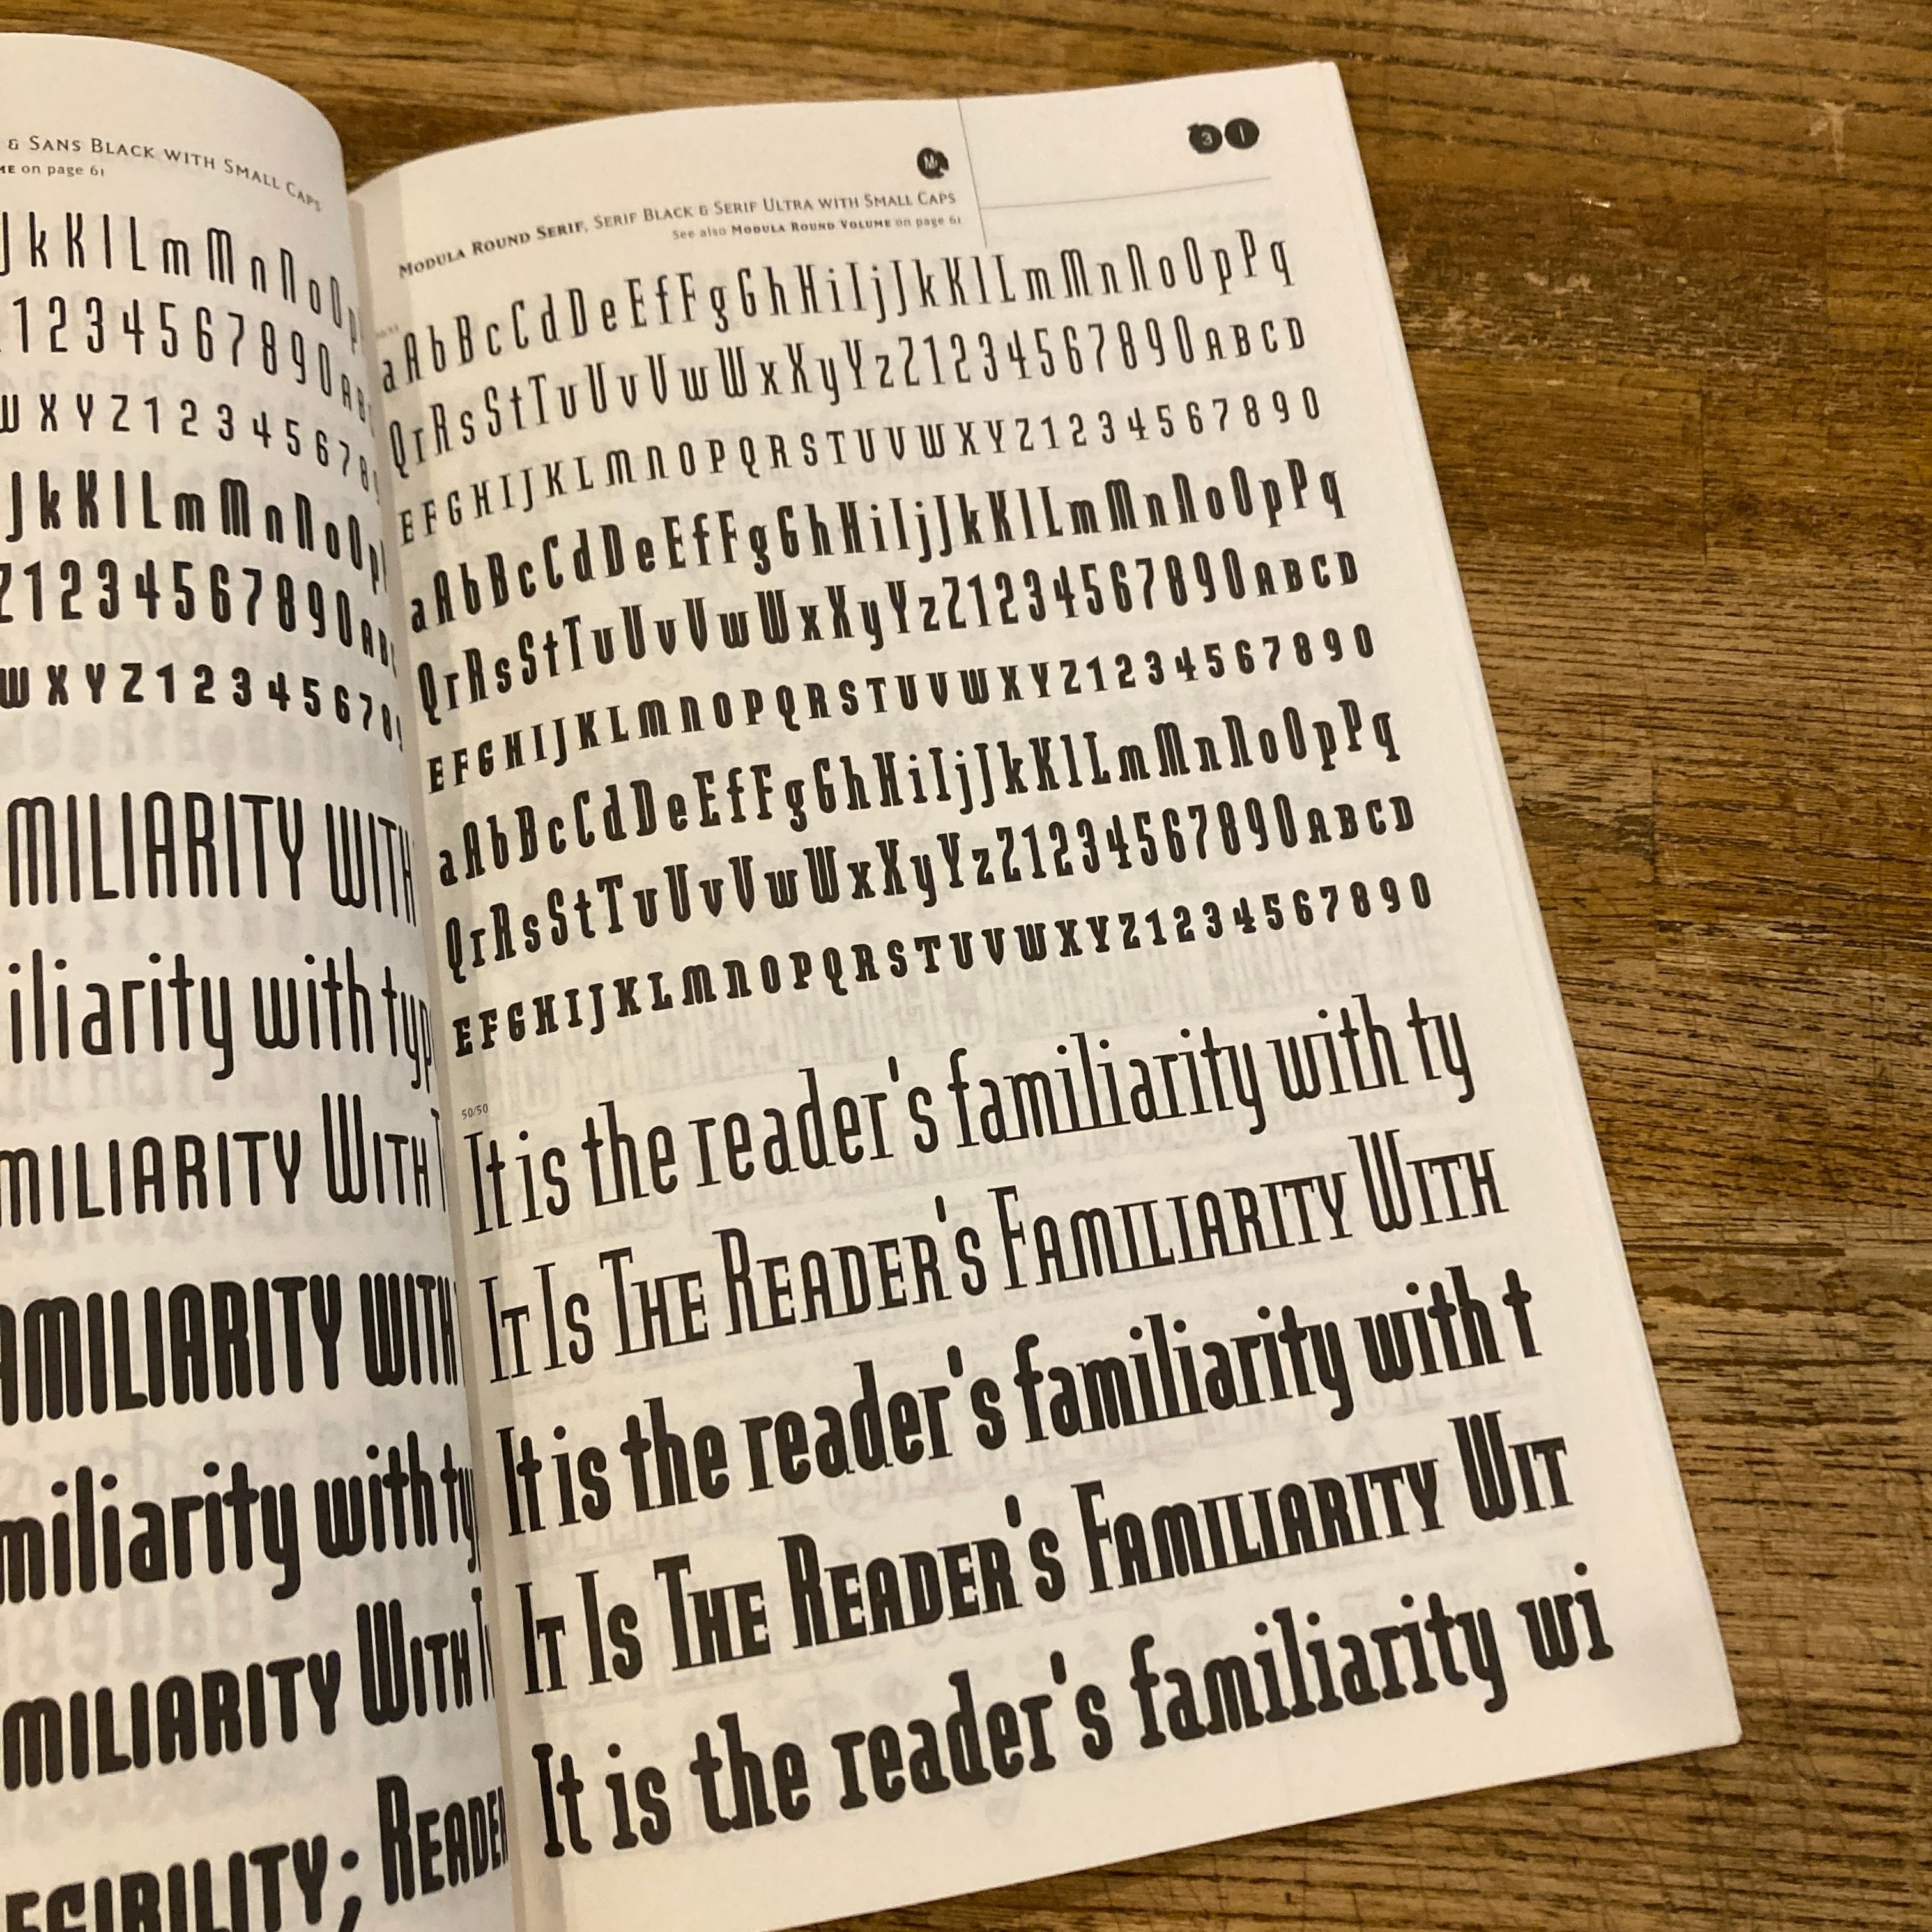 & Sans Black with Small Caps
on page 61
J k K l L m M n N o O
1 2 3 4 5 6 7 8 9 0 A B
W X Y Z 1 2 3 4 5 6 7 8
J k K l L m M n N o O p
Z 1 2 3 4 5 6 7 8 9 0 A B
W X Y Z 1 2 3 4 5 6 7 8
MILIARITY WITH
iliarity with typ
MILIARITY WITH
AMILIARITY WITH
miliarity with ty
MILIARITY WITH
; READER
31
Modula Round Serif, Serif Black & Serif Ultra with Small Caps
See also Modula Round Volume on page 61
aAbBcCdDeEfFgGhHiIjJkKlLmMnNoOpPq
QrRsStTuUvVwWxXyYzZ1234567890ABCD
EFGHIJKLMNOPQRSTUVWXYZ1234567890
aAbBcCdDeEfFgGhHiIjJkKlLmMnNoOpPq
QrRsStTuUvVwWxXyYzZ1234567890ABCD
EFGHIJKLMNOPQRSTUVWXYZ1234567890
aAbBcCdDeEfFgGhHiIjJkKlLmMnNoOpPq
QrRsStTuUvVwWxXyYzZ1234567890ABCD
EFGHIJKLMNOPQRSTUVWXYZ1234567890
50/50
It is the reader's familiarity with ty
It Is The Reader's Familiarity With
It is the reader's familiarity with t
It Is The Reader's Familiarity Wit
It is the reader's familiarity wi